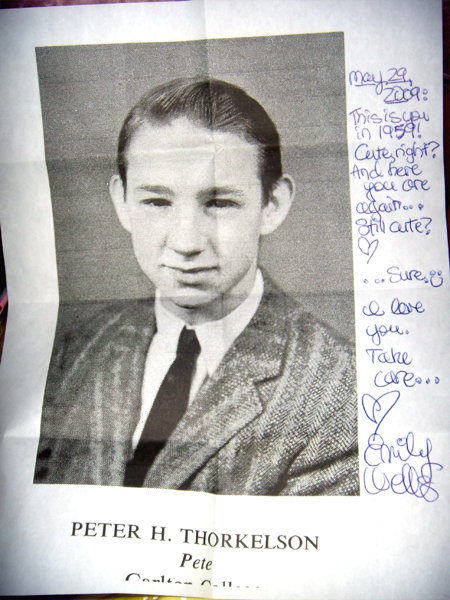 May 29,
2009:
This is you
in 1959!
Cute, right?
And here
you are
again...
Still cute?
♡
...Sure. 
I love
you.
Take
care...
♡
Emily
Wells
PETER H. THORKELSON
Pete
Carlton College